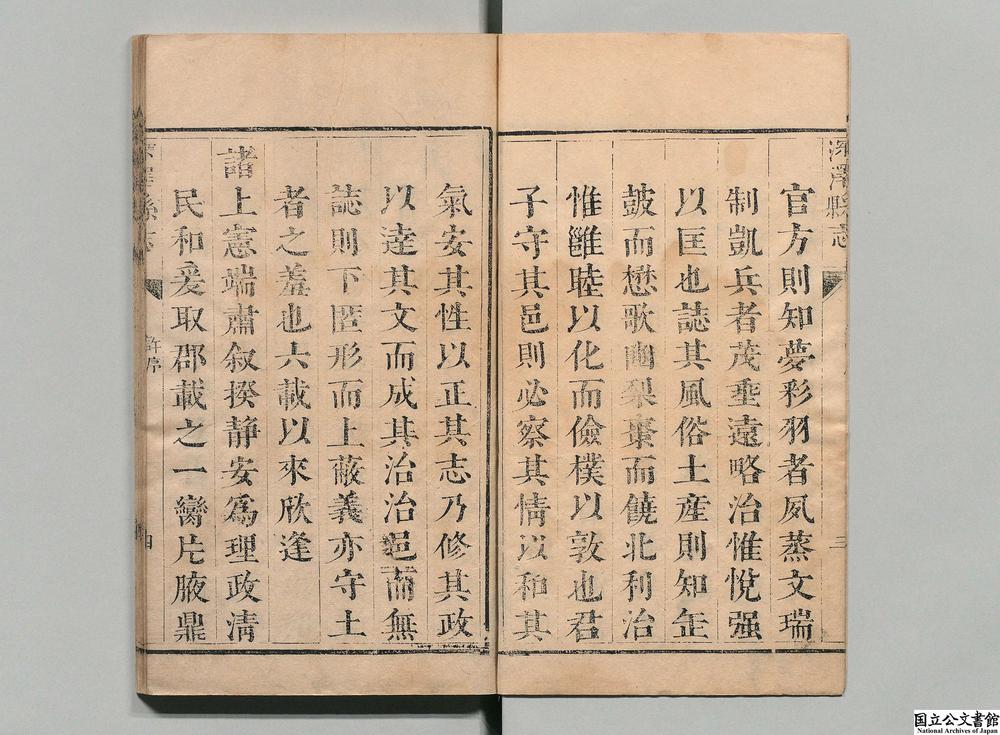 深澤縣志
三
官方則知夢彩羽者夙蒸文瑞
制凱兵者茂垂遠略治惟悅强
以匡也誌其風俗土産則知缶
鼓而懋歌豳梨棗而饒北利治
惟雝睦以化而儉樸以敦也君
子守其邑則必察其情以和其
氣安其性以正其志乃修其政
以達其文而成其治治邑而無
誌則下匿形而上蔽義亦守土
者之羞也六載以來欣逢
諸上憲端肅叙揆静安爲理政清
民和爰取郡載之一臠片腋鼎
深澤縣志
許序
四
国立公文書館
National Archives of Japan